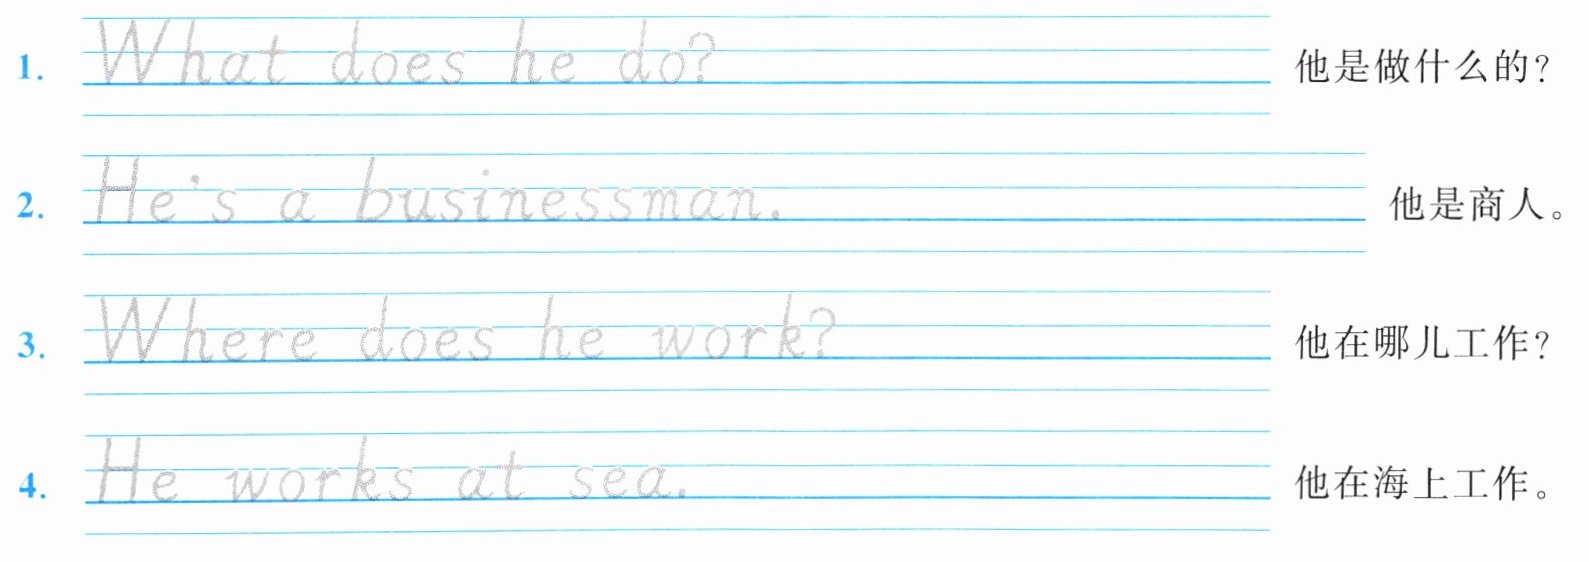 1. What does he do? 他是做什么的?
2. He's a businessman. 他是商人。
3. Where does he work? 他在哪儿工作?
4. He works at sea. 他在海上工作。